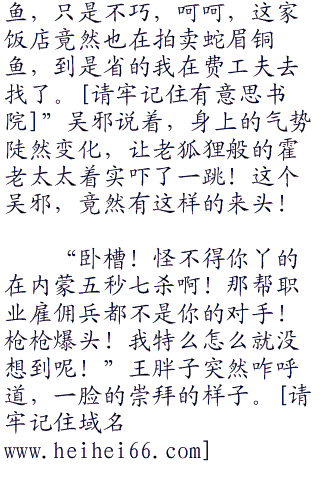 鱼，只是不巧，呵呵，这家
饭店竟然也在拍卖蛇眉铜
鱼，到是省的我在费工夫去
找了。[请牢记住有意思书
院]”吴邪说着，身上的气势
陡然变化，让老狐狸般的霍
老太太着实吓了一跳！这个
吴邪，竟然有这样的来头！
“卧槽！怪不得你丫的
在内蒙五秒七杀啊！那帮职
业雇佣兵都不是你的对手！
枪枪爆头！我特么怎么就没
想到呢！”王胖子突然咋呼
道，一脸的崇拜的样子。[请
牢记住域名
www.heihei66.com]